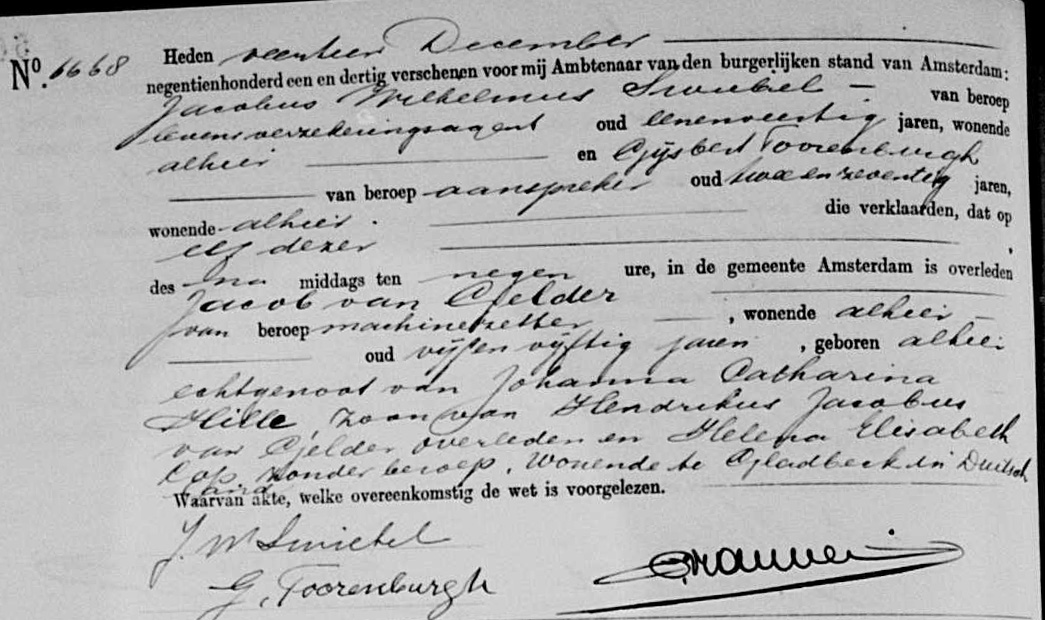 No. 6668 Heden veertien December
negentienhonderd een en dertig verschenen voor mij Ambtenaar van den burgerlijken stand van Amsterdam:
Jacobus Wilhelmus van beroep
levensverzekeringsagent oud eenenveertig jaren, wonende
alhier en Gijsbert Toorenburgh
van beroep aanspreker oud twee en zeventig jaren,
wonende alhier. die verklaarden, dat op
elf dezer ,
des na middags ten negen ure, in de gemeente Amsterdam is overleden
Jacob van Gelder
van beroep machinezetter , wonende alhier
oud vijfenvijftig jaren , geboren alhier
echtgenoot van Johanna Catharina
Hille, zoon van Hendrikus Jacobus
van Gelder overleden en Helena Elisabeth
Cop, zonder beroep, wonende te Gladbeck in Duitsch
land
Waarvan akte, welke overeenkomstig de wet is voorgelezen.
J. W.
G. Toorenburgh